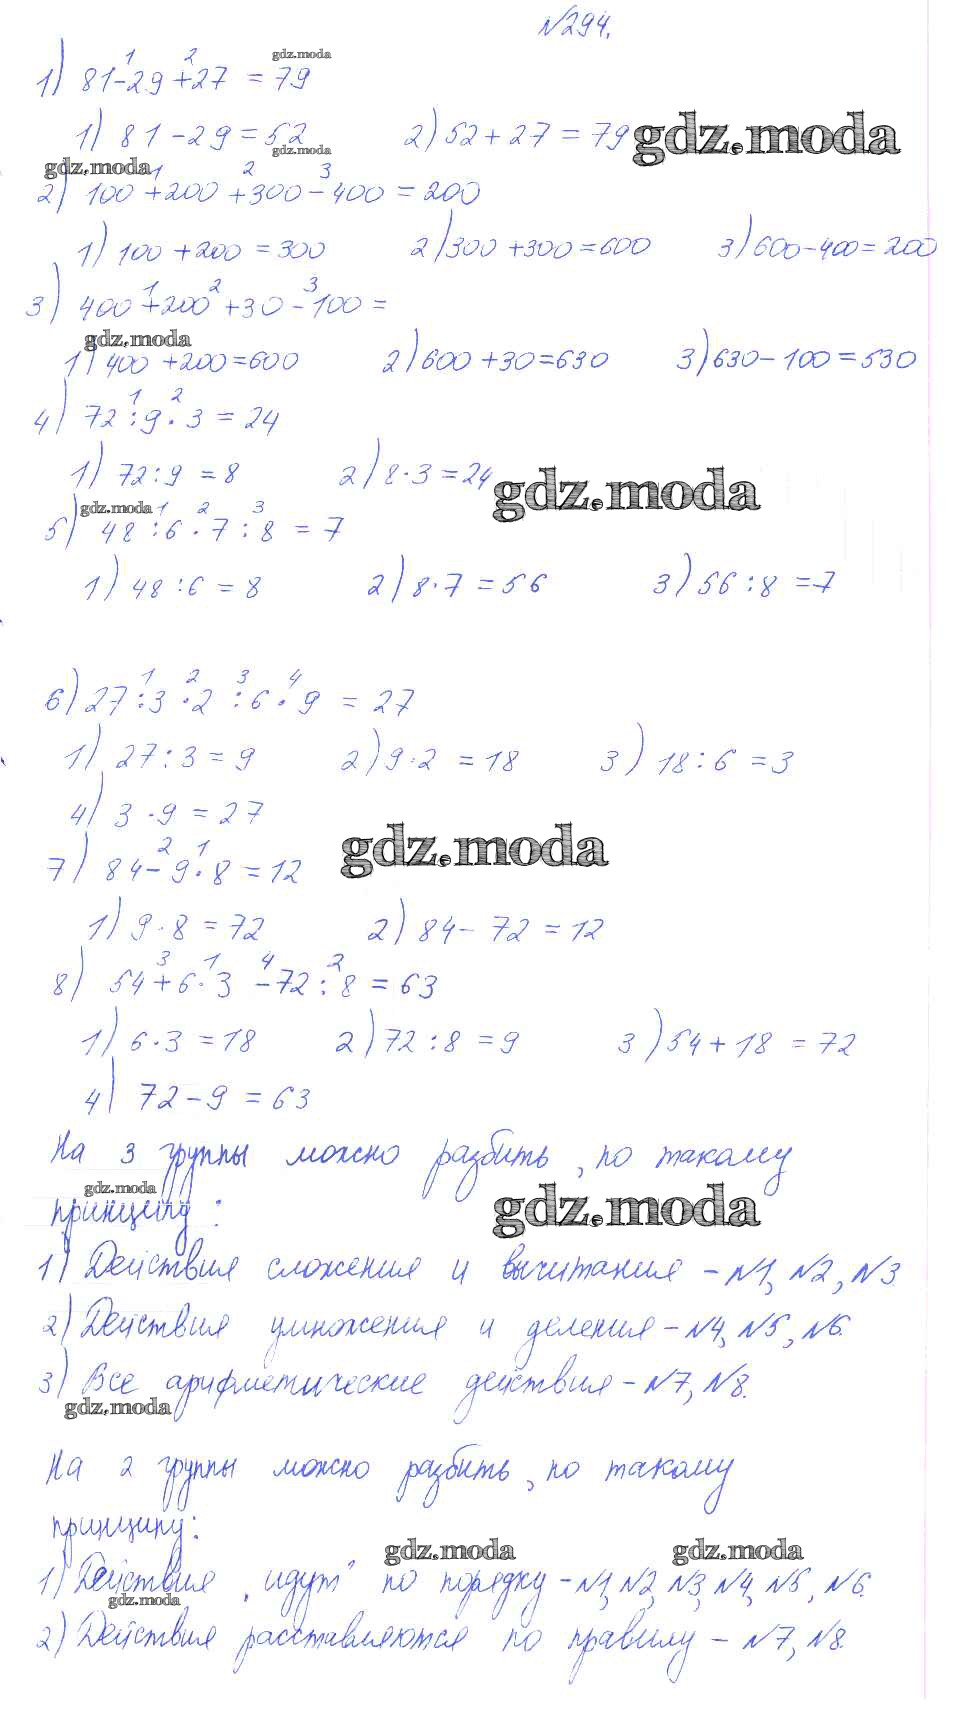 №294.
1) 81-29+27 = 79
1 2
gdz.moda
1) 81-29=52 2) 52+27=79
gdz.moda gdz.moda
gdz.moda
2) 100+200+300-400=200
1 2 3
1) 100+200=300 2) 300+300=600 3) 600-400=200
3) 400+200+30-100=
1 2 3
gdz.moda
1) 400+200=600 2) 600+30=630 3) 630-100=530
4) 72:9·3=24
1 2
1) 72:9=8 2) 8·3=24
gdz.moda
gdz.moda
5) 48:6·7:8=7
1 2 3
1) 48:6=8 2) 8·7=56 3) 56:8=7
6) 27:3·2:6·9=27
1 2 3 4
1) 27:3=9 2) 9·2=18 3) 18:6=3
4) 3·9=27
gdz.moda
7) 84-9·8=12
2 1
1) 9·8=72 2) 84-72=12
8) 54+6·3-72:8=63
3 1 4 2
1) 6·3=18 2) 72:8=9 3) 54+18=72
4) 72-9=63
На 3 группы можно разбить, по такому
gdz.moda gdz.moda
принципу:
1) Действия сложения и вычитания - №1, №2, №3.
2) Действия умножения и деления - №4, №5, №6.
3) Все арифметические действия - №7, №8.
gdz.moda
На 2 группы можно разбить, по такому
принципу:
gdz.moda gdz.moda
1) Действия „идут" по порядку - №1, №2, №3, №4, №5, №6.
gdz.moda
2) Действия расставляются по правилу - №7, №8.